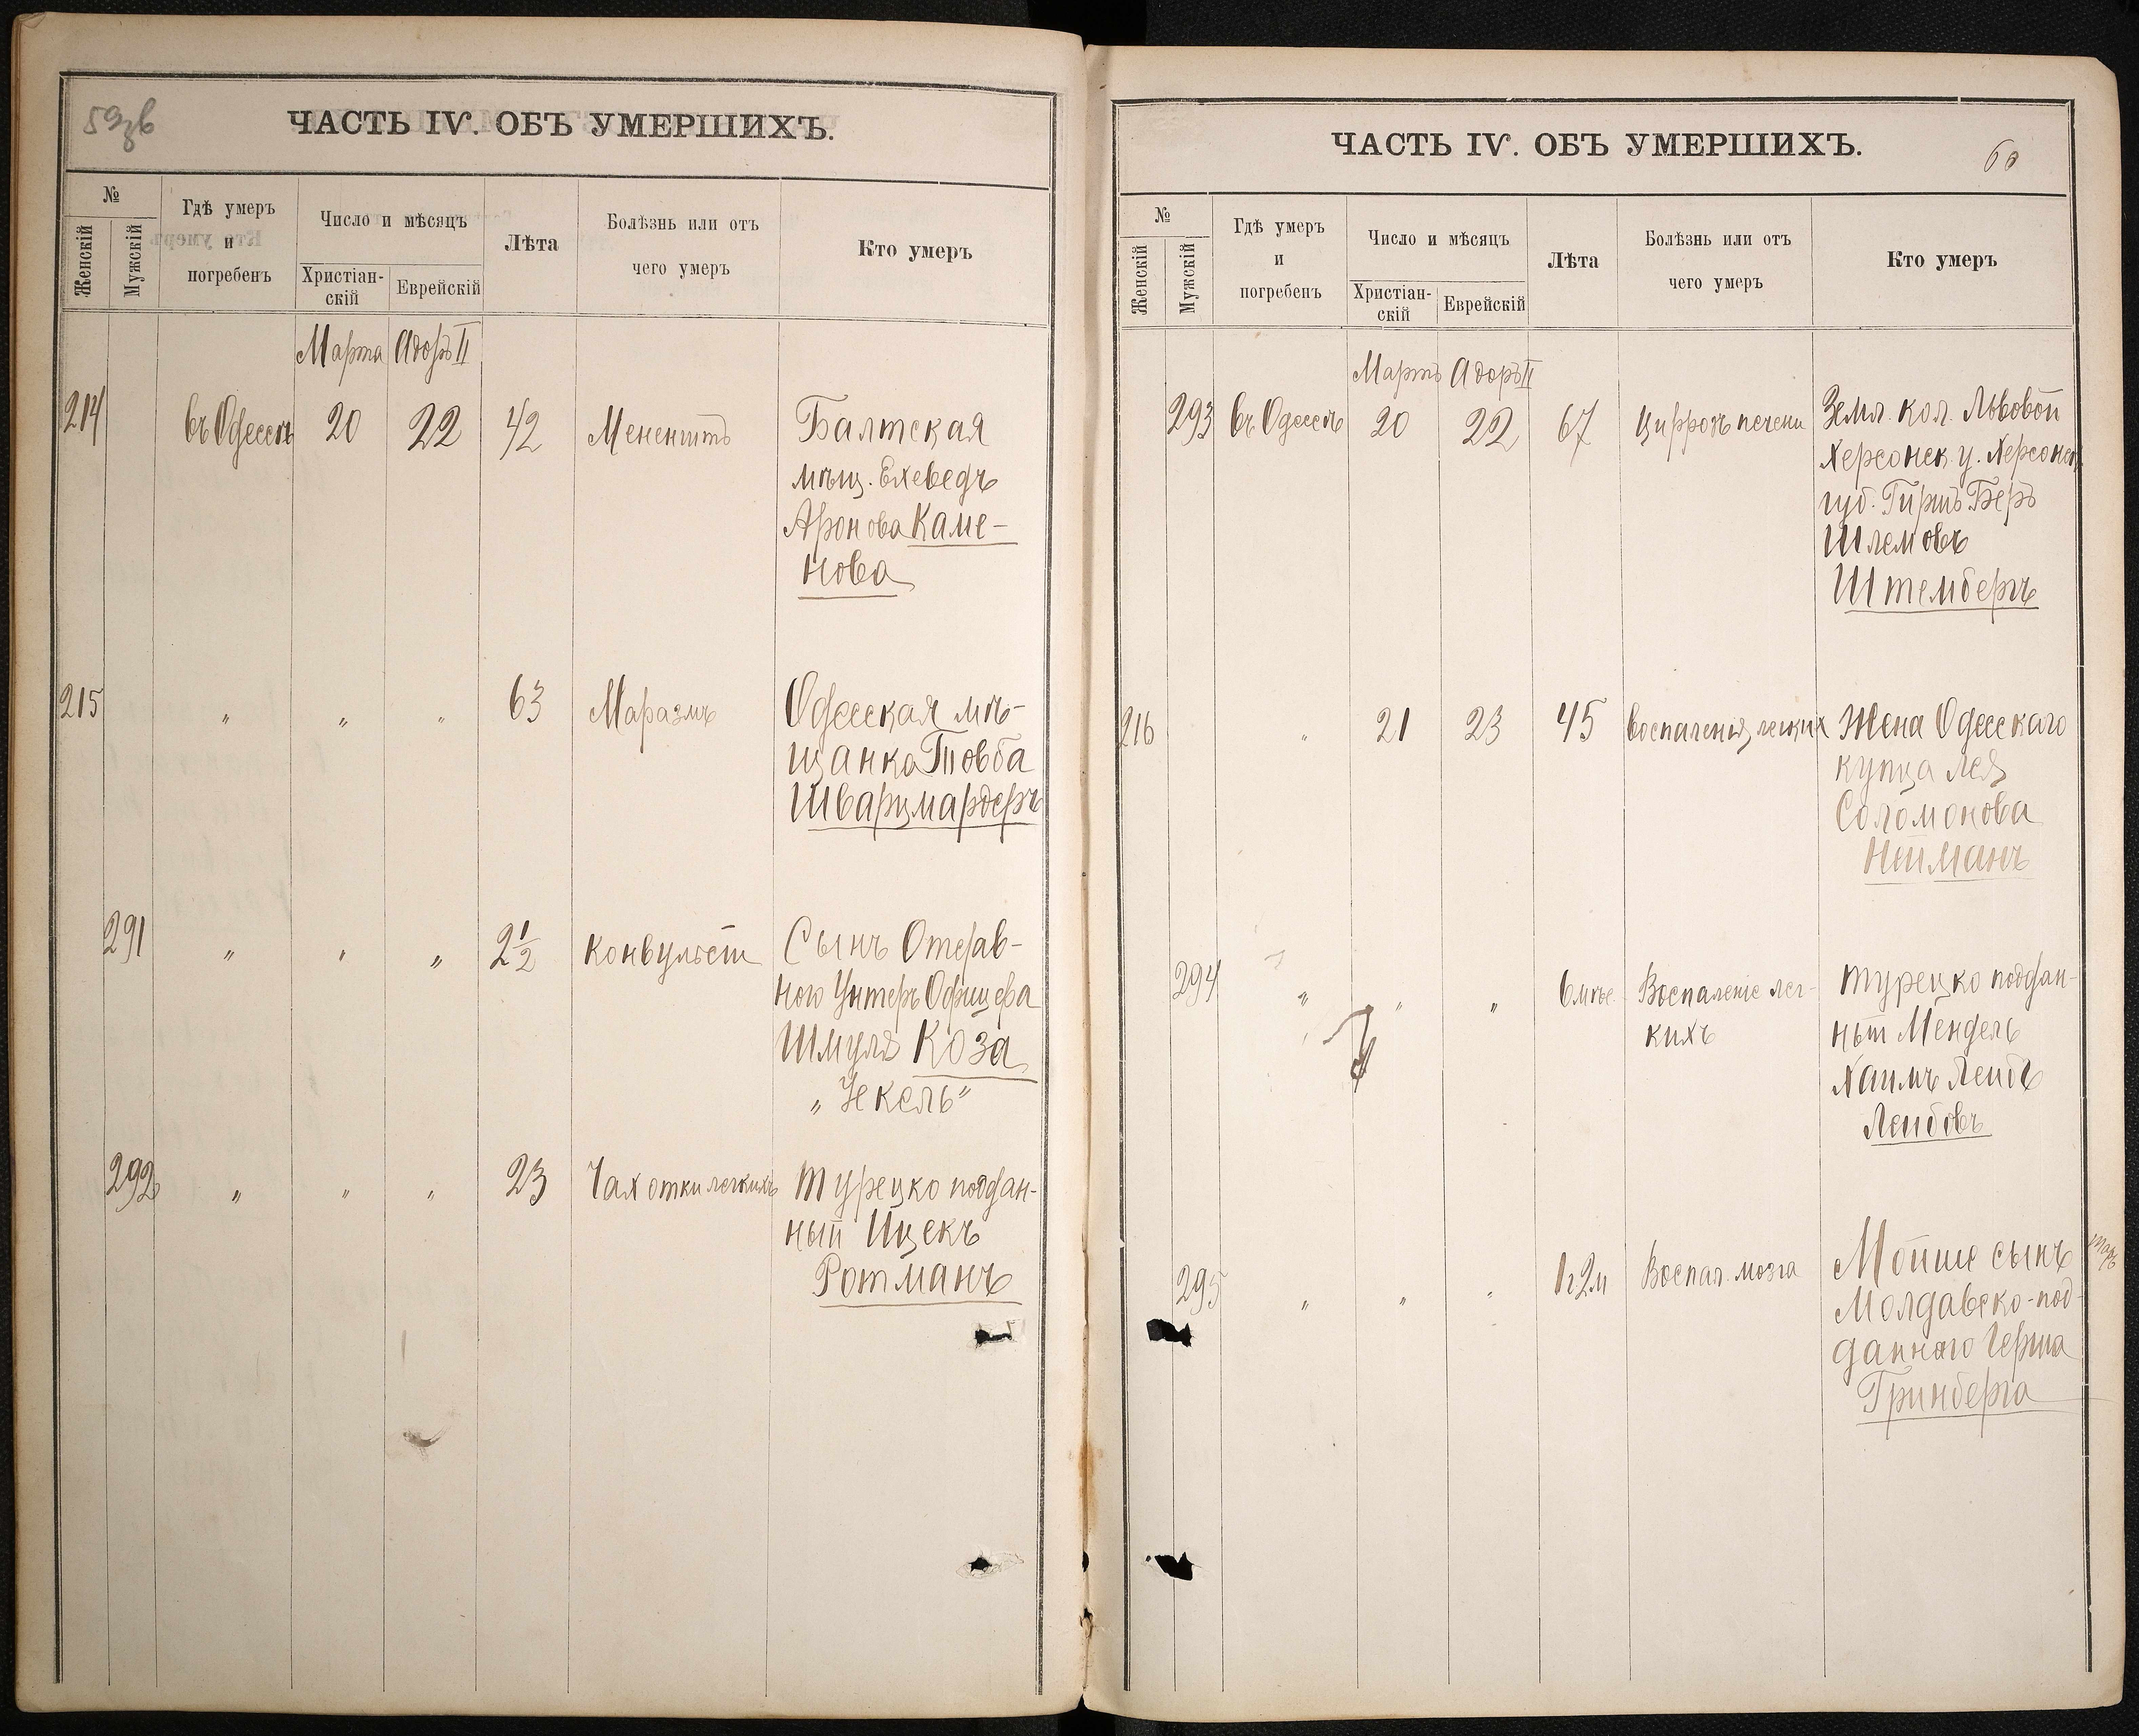 59зв
ЧАСТЬ IV. ОБЪ УМЕРШИХЪ.
№
Женскій
Мужскій
Гдѣ умеръ
и
погребенъ
Число и мѣсяцъ
Христіан-
скій
Еврейскій
Лѣта
Болѣзнь или отъ
чего умеръ
Кто умеръ
Марта Адоръ II
214 въ Одессѣ 20 22 42 Балтская
мѣщ. Ехеведъ
Аронова Каме-
нова
215 " " " 63 Маразмъ Одесская мѣ-
щанка Товба
Шварцмардеръ
291 " " " 2 1/2 Конвульсіи Сынъ Отстав-
ного Унтеръ Офицера
Шмуля Коза
292 " " " 23 Чахотки легкихъ Турецко поддан-
ный Ицекъ
Ротманъ
60
ЧАСТЬ IV. ОБЪ УМЕРШИХЪ.
№
Женскій
Мужскій
Гдѣ умеръ
и
погребенъ
Число и мѣсяцъ
Христіан-
скій
Еврейскій
Лѣта
Болѣзнь или отъ
чего умеръ
Кто умеръ
Мартъ Адоръ II
293 въ Одессѣ 20 22 67 Цирозъ печени Земл. кол. Львовой
Херсонск. у. Херсонск.
губ. Гиршъ Беръ
Шлемовъ
Штембергъ
216 " 21 23 45 Воспаленія легкихъ Жена Одесскаго
купца Лея
Соломонова
Нейманъ
294 " " " 6 мѣс. Воспаленіе лег-
кихъ
Турецко поддан-
ный Мендель
Хаимъ Лейбъ
Лейбовъ
295 " " " 1 г 2 м Воспал. мозга Мойше сынъ
Молдавско-под-
даннаго Герша
Гринберга